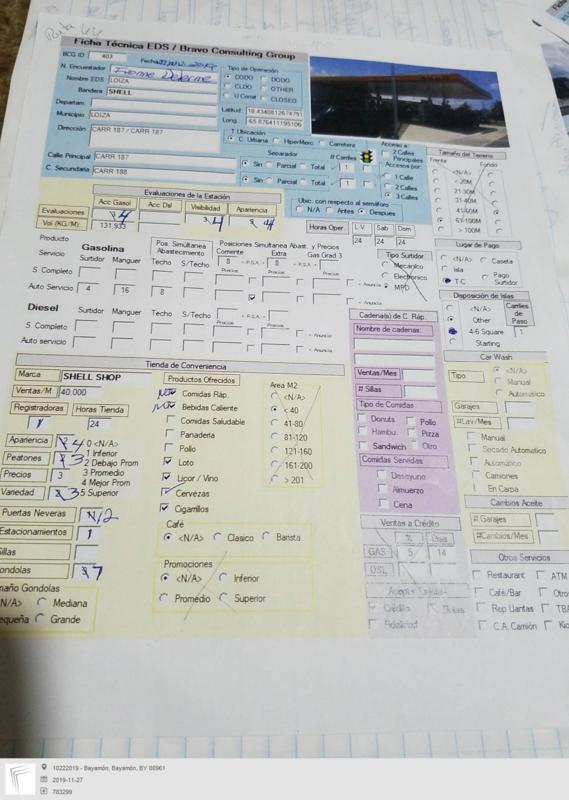 Ruta 44
Ficha Técnica EDS / Bravo Consulting Group
BCG ID 403
N. Encuestador
Nombre EDS LOIZA
Bandera SHELL
Departam.
Municipio LOIZA
Dirección CARR 187 / CARR 187
Calle Principal CARR 187
C. Secundaria CARR 188
Tipo de Operación
CODO DODO
CLDO OTHER
U Const CLOSED
Latitud 18.4340812674791
Long -65.876411195106
T Ubicación
C. Urbana HiperMero Carretera
Separador # Carriles
Sin Parcial Total 1
Sin Parcial Total 1
Acceso a:
2 Calles Principales
Accesos por:
1 Calle
2 Calles
3 Calles
Ubic. con respecto al semáforo
N/A Antes Despues
Tamaño del Terreno
Frente Fondo
<N/A>
< 20M
21-30M
31-40M
41-60M
61-100M
> 100M
Evaluaciones de la Estación
Acc Gasol Acc Dsl Visibilidad Apariencia
Evaluaciones 4 4 4
Vol (KG/M): 131.933
Horas Oper L-V Sab Dom
24 24 24
Producto Gasolina
Servicio Surtidor Manguer
S. Completo
Auto Servicio 4 16 8
Pos. Simultánea Abastecimiento
Techo S/Techo
Posiciones Simultanea Abast. y Precios
Corriente Extra Gas Grad 3
8 <-P.S.A.-> 8 <-P.S.A.->
Precios Precios Precios
Diesel
Surtidor Manguer Techo S/Techo
S. Completo
Auto servicio
<- Anuncia
<- Anuncia
Tipo Surtidor
Mecánico
Electronico
MPD
Lugar de Pago
<N/A> Caseta
Isla
T-C Pago Surtidor
Disposición de Islas
<N/A>
Other
4-6 Square
Starting
Carriles de Paso
1
Tienda de Conveniencia
Marca SHELL SHOP
Ventas/M 40,000
Registradoras Horas Tienda
1 24
Apariencia 4 0 <N/A>
Peatones 3 1 Inferior
2 Debajo Prom
Precios 3 3 Promedio
4 Mejor Prom
Variedad 3 5 Superior
Puertas Neveras 12
Estacionamientos 1
Sillas
Gondolas 7
Tamaño Gondolas
<N/A> Mediana
Pequeña Grande
Productos Ofrecidos
NO Comidas Ráp.
NO Bebidas Caliente
Comidas Saludable
Panaderia
Pollo
Loto
Licor / Vino
Cervezas
Cigarrillos
Area M2
<N/A>
< 40
41-80
81-120
121-160
161-200
> 201
Café
<N/A> Clasico Barista
Promociones
<N/A> Inferior
Promedio Superior
Cadena(s) de C. Ráp.
Nombre de cadenas:
Ventas/Mes
# Sillas
Tipo de Comidas
Donuts Pollo
Hambu. Pizza
Sandwich Otro
Comidas Servidas
Desayuno
Almuerzo
Cena
Ventas a Crédito
% Dias
GAS 5 14
DSL
Crédito
Fidelidad
Car Wash
Tipo <N/A>
Manual
Automatico
Garajes
#Lav/Mes
Manual
Secado Automatico
Automático
Camiones
En Carpa
Cambios Aceite
# Garajes
#Cambios/Mes
Otros Servicios
Restaurant ATM
Café/Bar Otro
Rep Llantas TBA
C.A. Camión Kio
10222019 - Bayamón, Bayamón, BY 00961
2019-11-27
783299